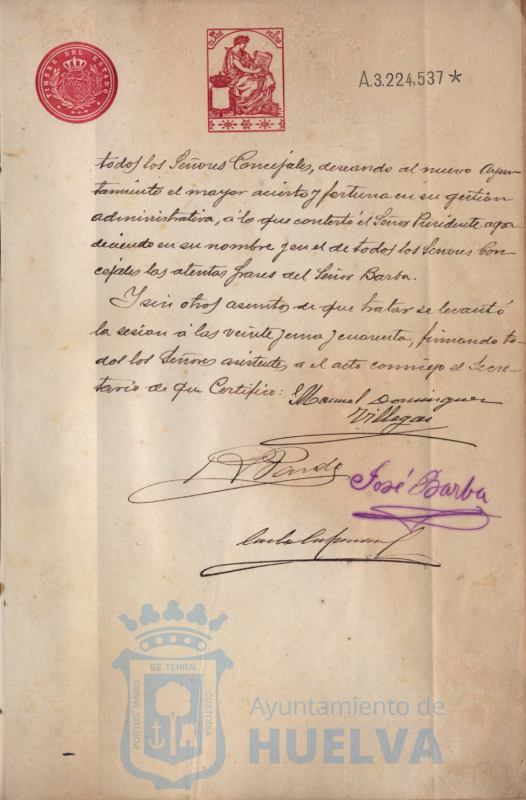 TIMBRE DEL ESTADO
A.3.224.537*
todos los Señores Concejales, deseando al nuevo Ayun-
tamiento el mayor acierto y fortuna en su gestion
administrativa, á lo que contestó el Señor Presidente agra
deciendo en su nombre y en el de todos los Señores Con-
cejales las atentas frases del Señor Barba.
Y sin otros asuntos de que tratar se levantó
la sesion á las veinte y una y cuarenta, firmando to-
dos los Señores asistentes a el acto conmigo el Secre-
tario de que Certifico: Manuel Dominguez
Villegas
Pardo
José Barba
PORTUS MARIS
ET TERRAE
CUSTODIA
Ayuntamiento de
HUELVA